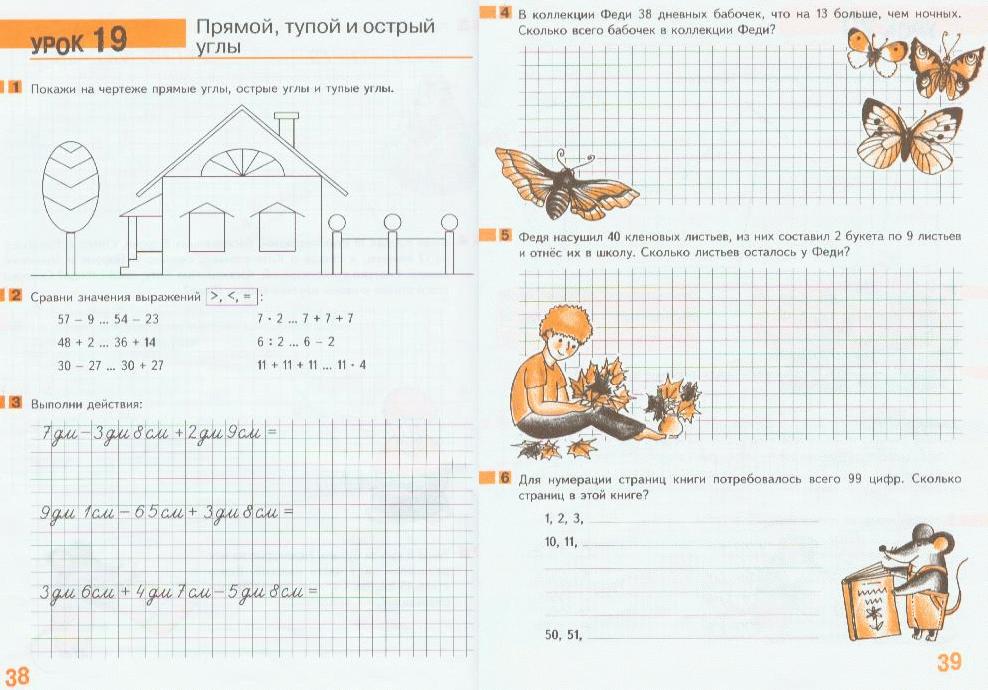 УРОК 19
Прямой, тупой и острый
углы
1 Покажи на чертеже прямые углы, острые углы и тупые углы.
2 Сравни значения выражений >, <, = :
57 – 9 ... 54 – 23
7 · 2 ... 7 + 7 + 7
48 + 2 ... 36 + 14
6 : 2 ... 6 – 2
30 – 27 ... 30 + 27
11 + 11 + 11 ... 11 · 4
3 Выполни действия:
7 дм – 3 дм 8 см + 2 дм 9 см =
9 дм 1 см – 65 см + 3 дм 8 см =
3 дм 6 см + 4 дм 7 см – 5 дм 8 см =
38
4 В коллекции Феди 38 дневных бабочек, что на 13 больше, чем ночных.
Сколько всего бабочек в коллекции Феди?
5 Федя насушил 40 кленовых листьев, из них составил 2 букета по 9 листьев
и отнёс их в школу. Сколько листьев осталось у Феди?
6 Для нумерации страниц книги потребовалось всего 99 цифр. Сколько
страниц в этой книге?
1, 2, 3,
10, 11,
50, 51,
39